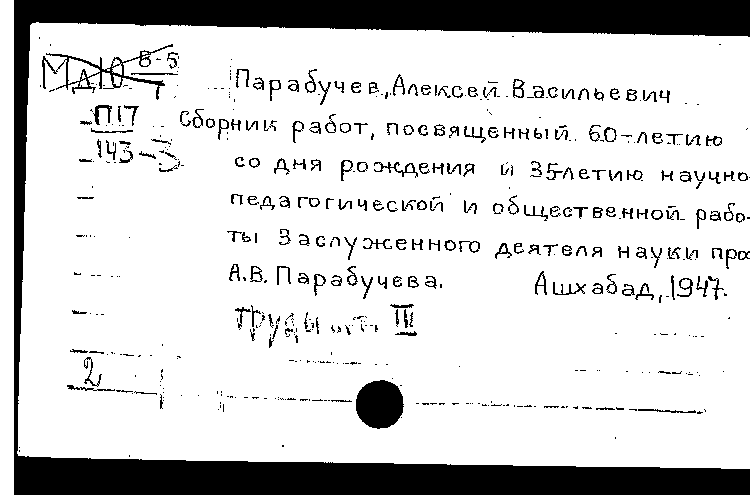 МдЮ В-5
7
Парабучев, Алексей Васильевич
П17 Сборник работ, посвященный 60-летию
143-3 со дня рождения и 35-летию научно-
педагогической и общественной рабо-
ты Заслуженного деятеля науки проф
А.В. Парабучева. Ашхабад, 1947.
Труды III
2